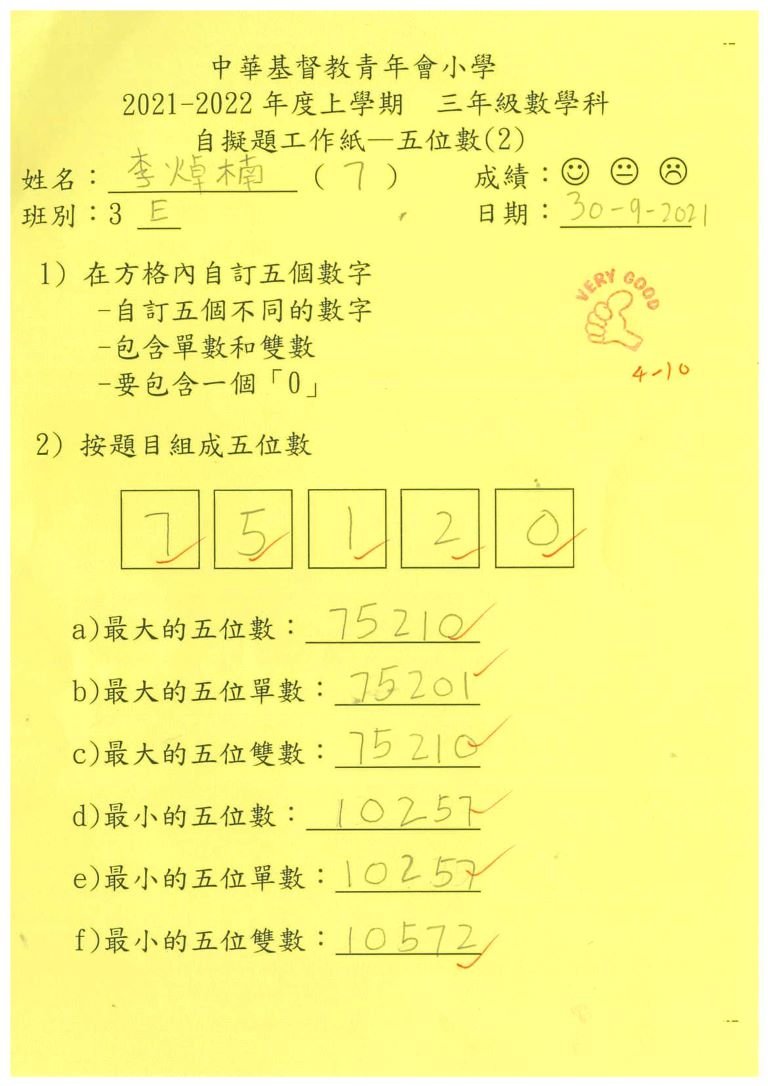 中華基督教青年會小學
2021-2022 年度上學期 三年級數學科
自擬題工作紙—五位數(2)
姓名：李焯楠 ( 7 ) 成績：
班別：3 E 日期：30-9-2021
1) 在方格內自訂五個數字
-自訂五個不同的數字
-包含單數和雙數
-要包含一個「0」
VERY GOOD
4-10
2) 按題目組成五位數
7 5 1 2 0
a)最大的五位數：75210
b)最大的五位單數：75201
c)最大的五位雙數：75210
d)最小的五位數：10257
e)最小的五位單數：10257
f)最小的五位雙數：10572